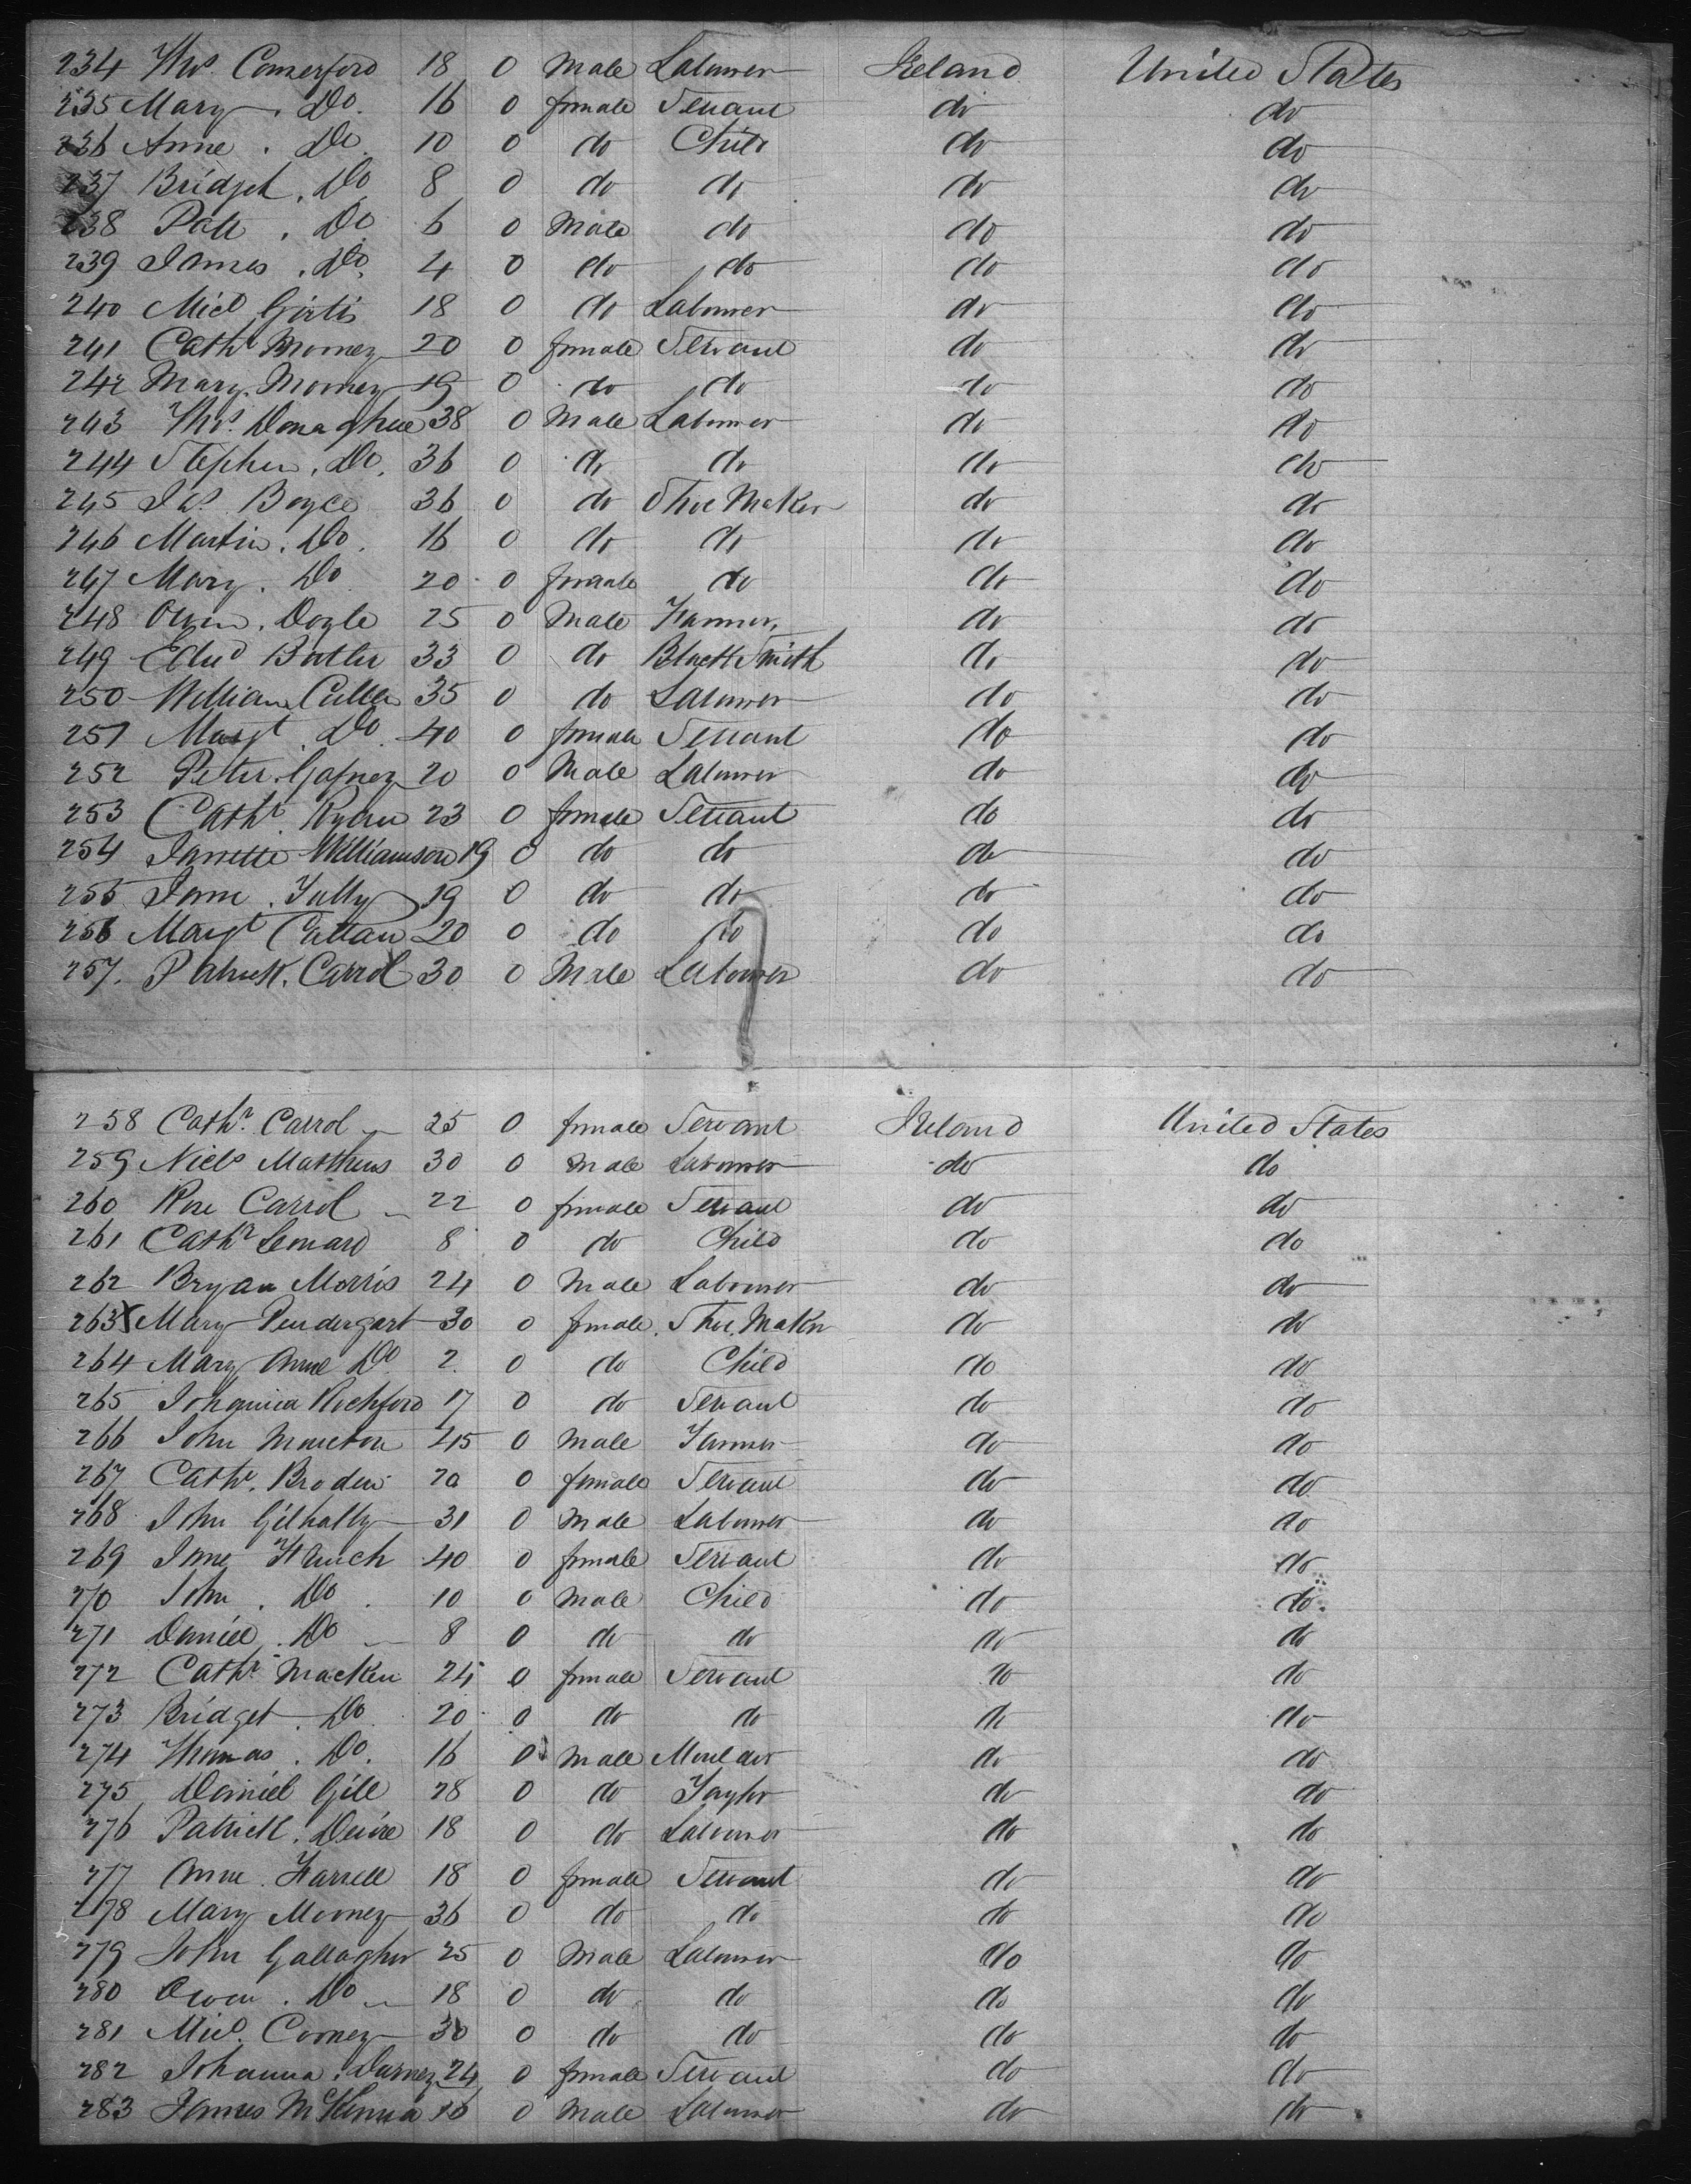 234 Thos. Comerford 18 0 Male Labourer Ireland United States
235 Mary . Do. 16 0 female Servant do do
236 Anne . Do. 10 0 do Child do do
237 Bridget . Do 8 0 do do do do
238 Patt . Do 6 0 Male do do do
239 James . Do. 4 0 do do do do
240 Micl 18 0 do Labourer do do
241 Cathe Mooney 20 0 female Servant do do
242 Mary Mooney 19 0 do do do do
243 Thos. Donaghue 38 0 Male Labourer do do
244 Stephen . Do. 36 0 do do do do
245 Jas. Boyce 36 0 do Shoe Maker do do
246 Martin . Do. 16 0 do do do do
247 Mary . Do 20 0 female do do do
248 Owen . Doyle 25 0 Male Farmer do do
249 Edwd Butler 33 0 do Black Smith do do
250 William Cullen 35 0 do Labourer do do
251 Margt . Do. 40 0 female Servant do do
252 Peter Gafney 20 0 Male Labourer do do
253 Cathe. Ryan 23 0 female Servant do do
254 Janette Williamson 19 0 do do do do
255 Jane . Tully 19 0 do do do do
256 Margt Callan 20 0 do do do do
257. Patrick. Carrol 30 0 Male Labourer do do
258 Cathe. Carrol 25 0 female Servant Ireland United States
259 Nichs Matthews 30 0 Male Labourer do do
260 Rose Carrol 22 0 female Servant do do
261 Cathe Leonard 8 0 do Child do do
262 Bryan Morris 24 0 Male Labourer do do
263 X Mary Pendergart 30 0 female Shoe Maker do do
264 Mary Anne Do 2 0 do Child do do
265 Rochford 17 0 do Servant do do
266 John 45 0 Male Farmer do do
267 Cathe. Broderi 20 0 female Servant do do
268 John Gilhally 31 0 Male Labourer do do
269 Jane 40 0 female Servant do do
270 John . Do . 10 0 Male Child do do
271 Daniel . Do 8 0 do do do do
272 Cathe. Macken 24 0 female Servant do do
273 Bridget . Do 20 0 do do do do
274 Thomas . Do. 16 0 Male Moulder do do
275 Daniel Gill 28 0 do Taylor do do
276 Patrick . Devine 18 0 do Labourer do do
277 Anne . Farrell 18 0 female Servant do do
278 Mary Mooney 36 0 do do do do
279 John Gallagher 25 0 Male Labourer do do
280 Owen . Do 18 0 do do do do
281 Micl. Cooney 30 0 do do do do
282 Johanna . Durney 24 0 female Servant do do
283 James McKenna 16 0 Male Labourer do do